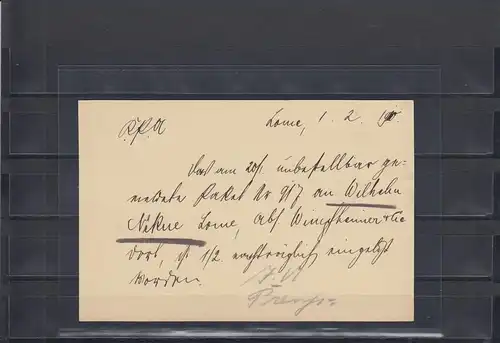 Lome, 1. 2.
Das am 20/1. unbestellbar ge-
meldete Paket Nr 917 an Wilhelm
Lome, Abs Wimpfheimer & Cie
dort, ist 1/2. nachträglich eingelöst
worden.